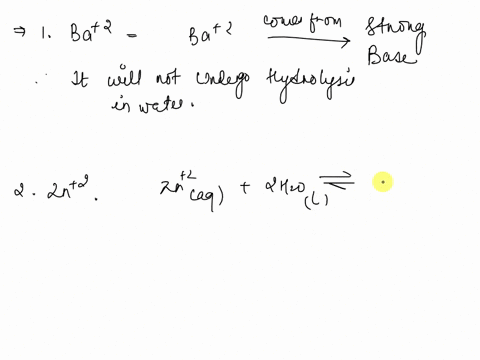 ⇒ 1. Ba⁺² = Ba⁺² comes from → Strong Base
∴ It will not undergo Hydrolysis
in water.
2. Zn⁺². Zn⁺²(aq) + 2H₂O(l) ⇌